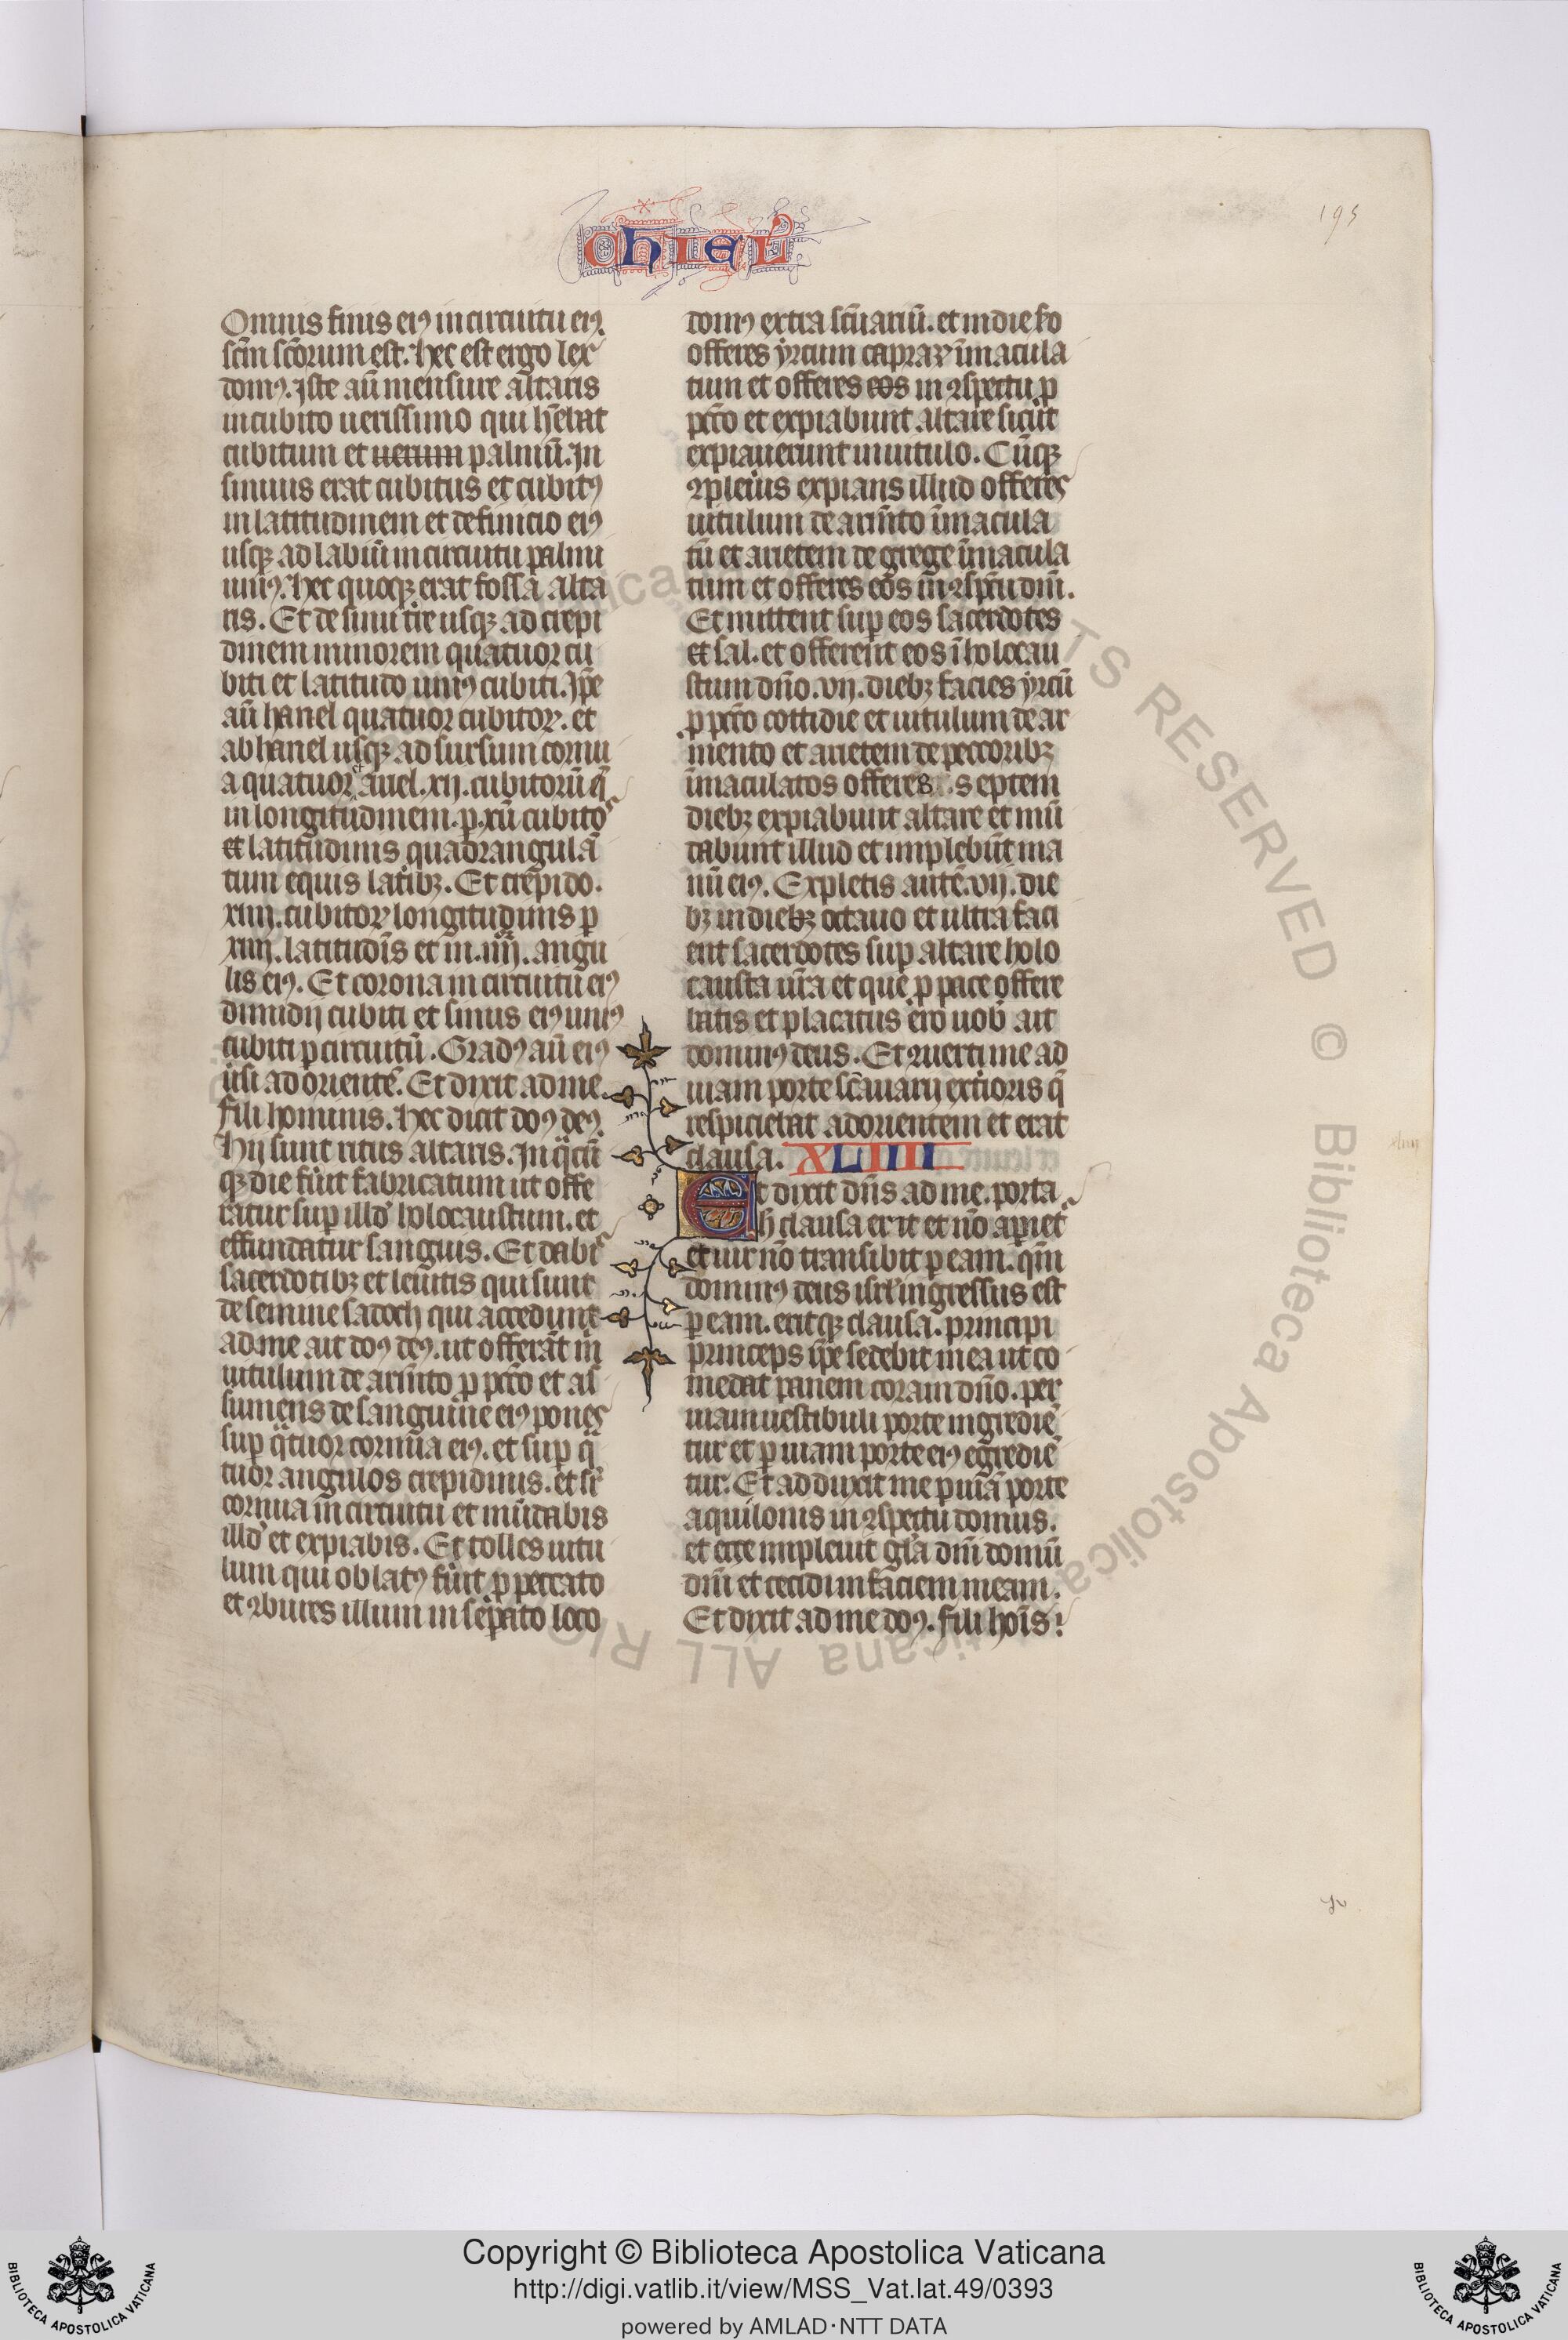 chiel
195
Omnis finis eiꝰ in circuitu eiꝰ.
sc̄m sc̄orum est. hec est ergo lex
domꝰ. Iste aū mensure altaris
in cubito uerissimo qui h̄ebat
cubitum et uerum palmū. In
sinuus erat cubitus et cubitꝰ
in latitudinem et definicio eiꝰ
usqꝫ ad labiū in circuitu palmi
uniꝰ. hec quoqꝫ erat fossa alta
ris. Et de sinu tr̄e usqꝫ ad crepi
dinem minorem quatuor cu
biti et latitudo uniꝰ cubiti. Ip̄e
aū hariel quatuor cubitoꝝ. et
ab hariel usqꝫ ad sursum cornu
a quatuor auel. xij. cubitorū q̄
in longitudinem. ꝑ. xij cubitos
et latitudinis quadrangula
tum equis latibꝫ. Et crepido.
xiiij. cubitoꝝ longitudinis ꝑ
xiiij. latitudīs et in. iiij. angu
lis eiꝰ. Et corona in circuitu eiꝰ
dimidij cubiti et sinus eiꝰ uniꝰ
cubiti ꝑ circuitū. Gradꝰ aū eiꝰ
ūsi ad orientē. Et dixit ad me.
fili hominis. hec dicit doꝰ deꝰ.
hij sunt ritus altaris. In q̄cū
qꝫ die fūit fabricatum ut offe
ratur suꝑ illd̓ holocaustum. et
effundatur sanguis. Et dabis
sacerdotibꝫ et leuitis qui sunt
de semine sadoch qui accedunt
ad me ait doꝰ deꝰ. ut offerāt m̄
uitulum de arm̄to ꝓ pc̄c̄o et as
sumens de sanguine eiꝰ pones
suꝑ q̄tuor cornua eiꝰ. et suꝑ q̄
tuor angulos crepidinis. et sr̄
cornua in circuitu et mūdabis
illd̓ et expiabis. Et tolles uitu
lum qui oblatꝰ fūit ꝓ peccato
et ꝯbures illum in sep̄ato loco
domꝰ extra sc̄uariū. et in die sc̄o
offeres yrcum capraꝝ īmacula
tum et offeres eos in ꝯspectu ꝓ
pc̄c̄o et expiabunt altare sicut
expiauerunt in uitulo. Cūqꝫ
ꝯpleuis expians illud offeres
uitulum de arm̄to īmacula
tū et arietem de grege īmacula
tum et offeres eos in ꝯspc̄tu dn̄i.
Et mittent suꝑ eos sacerdotes
et sal. et offerent eos ī holocau
stum dn̄o. vij. diebꝫ facies yrcū
ꝓ pc̄c̄o cottidie et uitulum de ar
mento et arietem de peccoribꝫ
īmaculatos offeres septem
diebꝫ expiabunt altare et mū
dabunt illud et implebūt ma
nū eiꝰ. Expletis autē. vij. die
bꝫ in diebꝫ octauo et ultra faci
ent sacerdotes suꝑ altare holo
causta ur̄a et que ꝓ pace offere
latis et placatus ero uob̓ ait
dominꝰ deus. Et ꝯuerti me ad
uiam porte sc̄uarij exterioris q̄
respiciebat ad orientem et erat
clausa. XLIIII
Et dixit dn̄s ad me. porta
h̓ clausa erit et nō aꝑiet̄
et uir nō transibit ꝑ eam. qm̄
dominꝰ deus isrl̓ ingressus est
ꝑ eam. eritqꝫ clausa. principi
princeps ip̄e sedebit in ea ut co
medat panem coram dn̄o. per
uiam uestibuli porte ingredie
tur et ꝑ uiam porte eiꝰ egredie
tur. Et adduxit me ꝑ uiā porte
aquilonis in ꝯspectu domus.
et ecce impleuit gl̄a dn̄i domū
dn̄i et cecidi in faciem meam.
Et dixit ad me doꝰ. fili hoīs
Copyright © Biblioteca Apostolica Vaticana
http://digi.vatlib.it/view/MSS_Vat.lat.49/0393
powered by AMLAD·NTT DATA
BIBLIOTECA APOSTOLICA VATICANA
BIBLIOTECA APOSTOLICA VATICANA